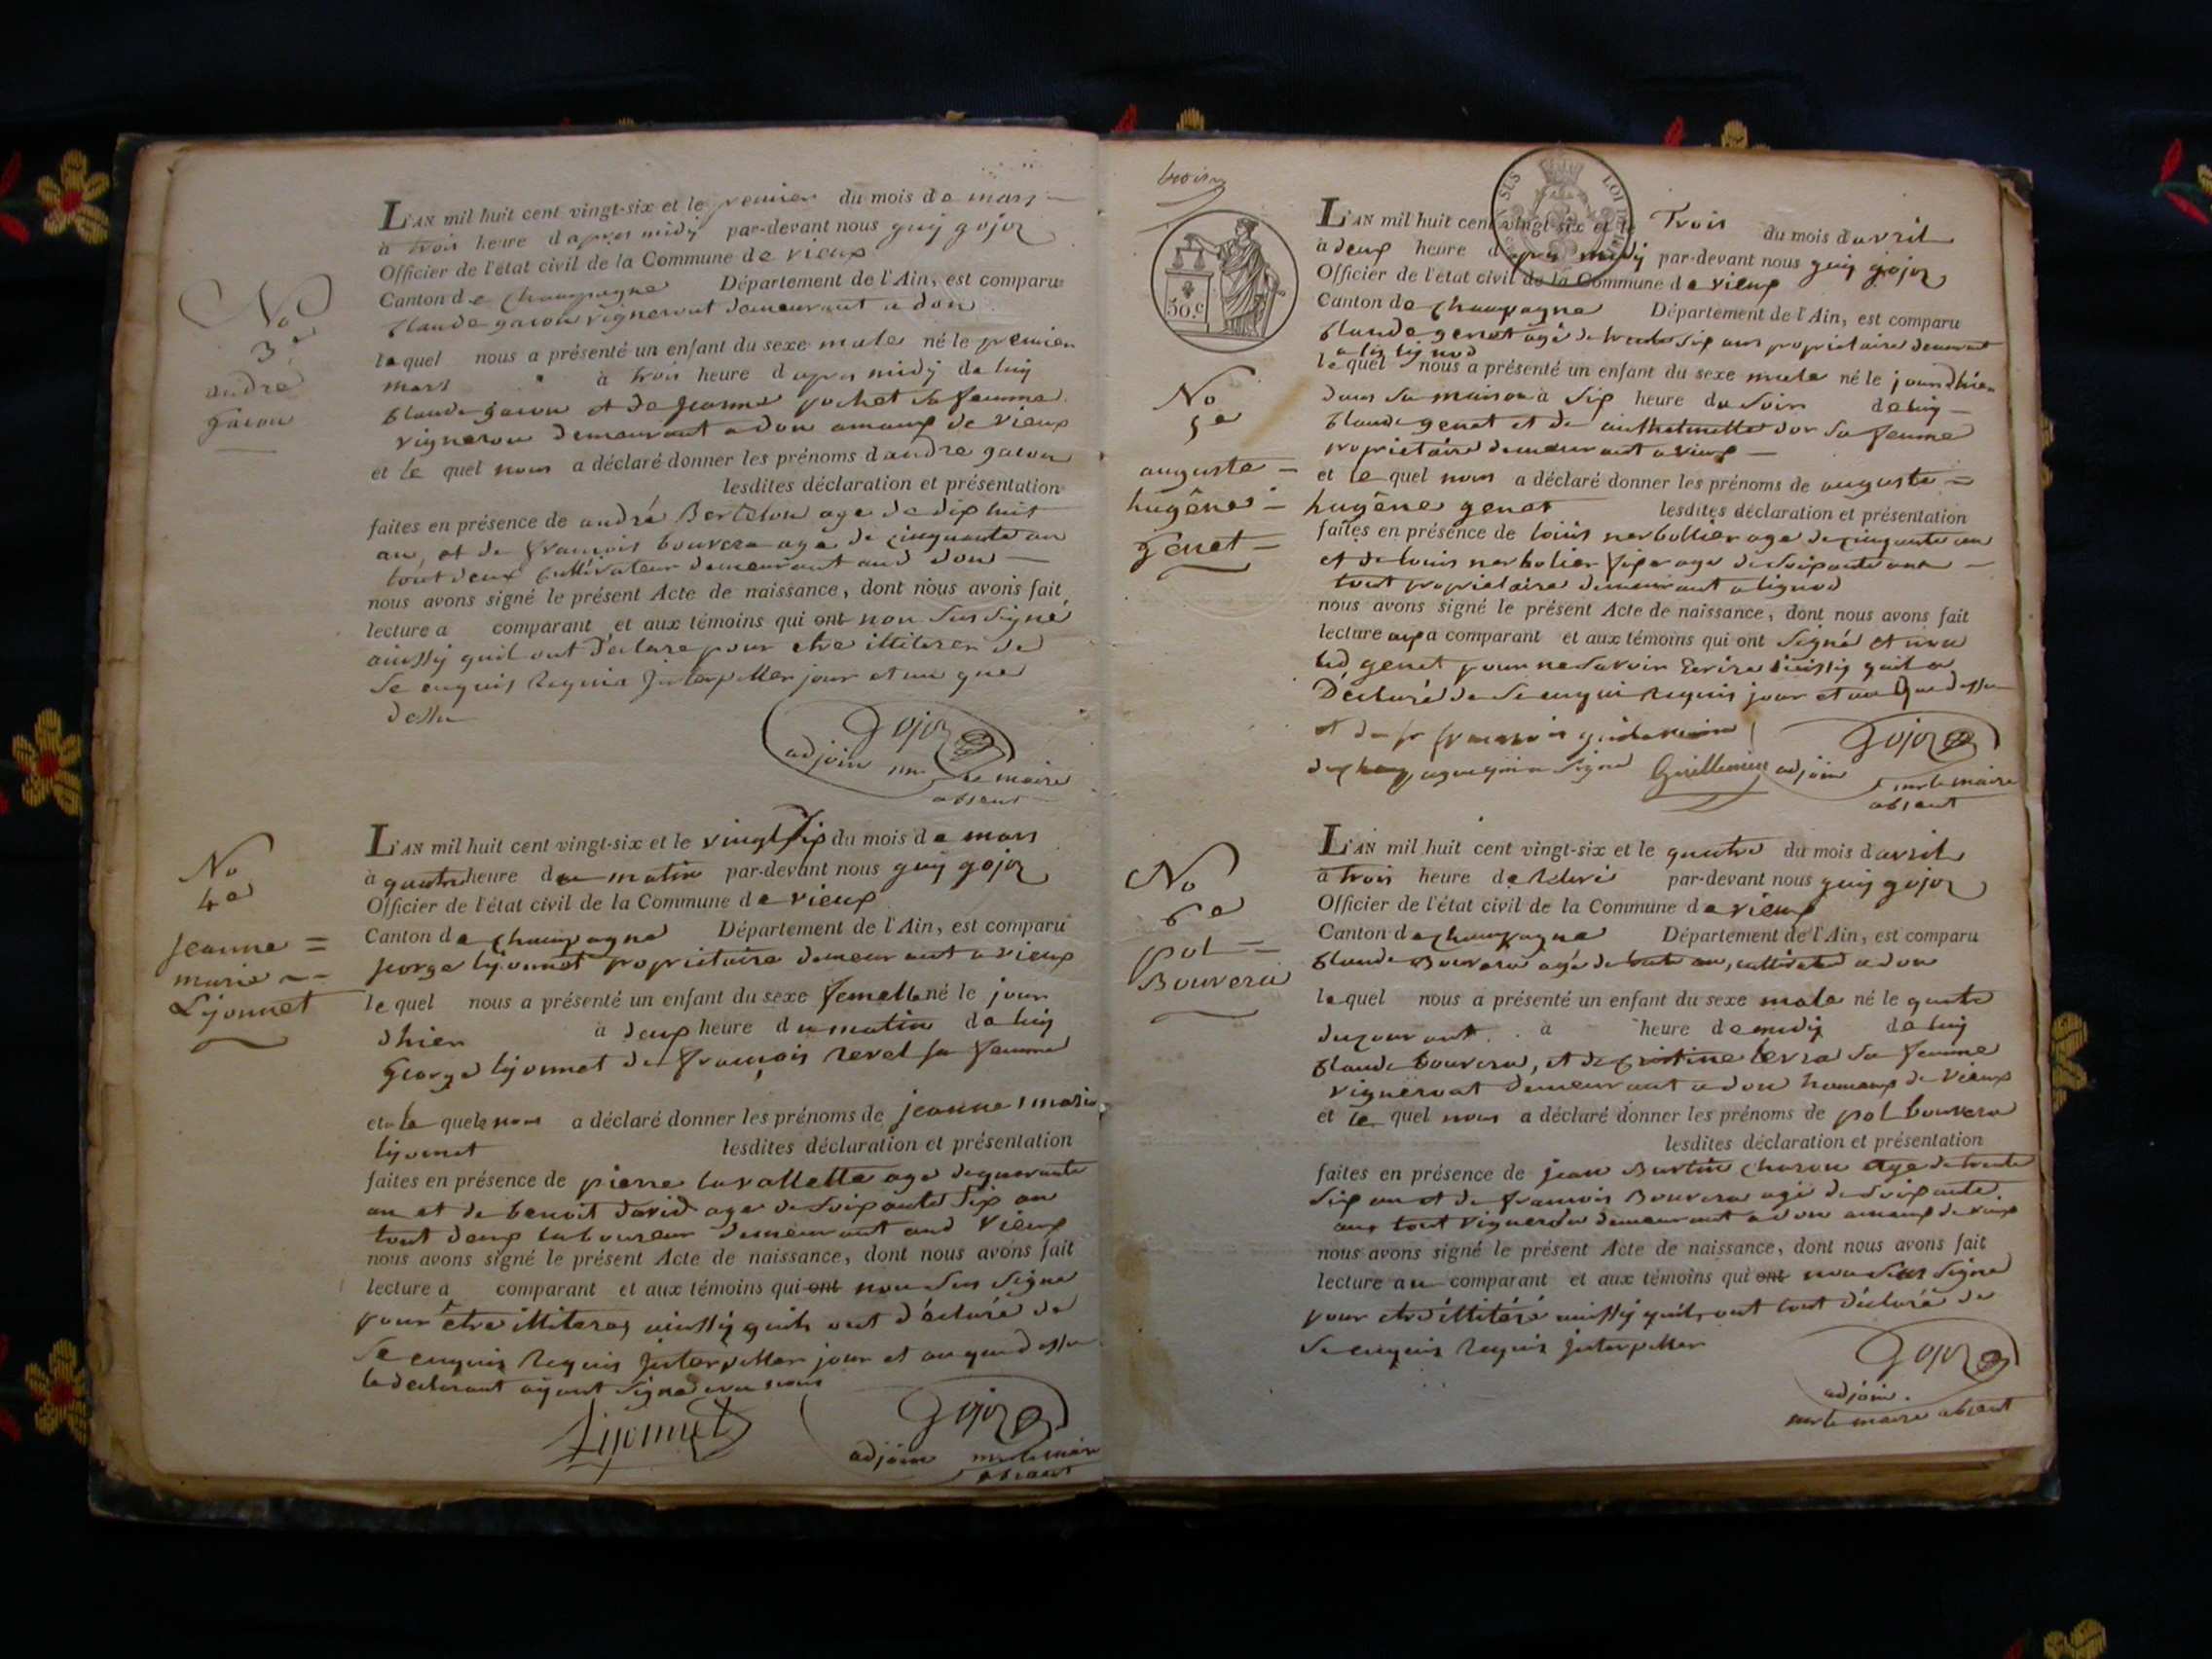 L'AN mil huit cent vingt-six et le premier du mois de mars
à trois heure d'apres midÿ par-devant nous guÿ gojoz
Officier de l'état civil de la Commune de vieux
Canton de Champagne Département de l'Ain, est comparu
Claude gacon vigneront demeurant a don
le quel nous a présenté un enfant du sexe male né le premier
mars à trois heure d'apres midÿ de luÿ
Claude gacon et de jeanne pochet sa femme
vigneron demeurant a don amaux de vieux
et le quel nous a déclaré donner les prénoms d'andre gacon
lesdites déclaration et présentation
faites en présence de andré Bertelon age de dix huit
an, et de francois bouvera age de cinquante an
tout deux cultivateur demeurant aud don
nous avons signé le présent Acte de naissance, dont nous avons fait
lecture a comparant et aux témoins qui ont non sus signé
ainssÿ quil ont déclare pour etre illiterer de
se enquis requis interpeller jour et an que
dessu
Gojoz
adjoin pr le maire
absent
No
3e
andré
gacon
L'AN mil huit cent vingt-six et le vingt six du mois de mars
à quatre heure du matin par-devant nous guÿ gojoz
Officier de l'état civil de la Commune de vieux
Canton de Champagne Département de l'Ain, est comparu
george lÿonnet propriétaire demeurant a vieux
le quel nous a présenté un enfant du sexe femelle né le jour
dhier à deux heure du matin de luÿ
George lÿonnet de françois revel sa femme
et le quel nous a déclaré donner les prénoms de jeanne marie
lÿonnet lesdites déclaration et présentation
faites en présence de pierre lavallette age de quarante
an et de benoit david age de soixante six an
tout deux laboureur demeurant aud vieux
nous avons signé le présent Acte de naissance, dont nous avons fait
lecture a comparant et aux témoins qui ont non sus signe
pour etre illiteres ainssÿ quils ont déclaré de
se enquis requis interpeller jour et an que dessu
le declarant aÿant signe avec nous
Lijonnet
Gojoz
adjoin pr le maire
absent
No
4e
jeanne =
marie
Lÿonnet
trois
SUS LOI
50.c
L'AN mil huit cent vingt-six et le Trois du mois d'avril
à deux heure d'apres midÿ par-devant nous guÿ gojoz
Officier de l'état civil de la Commune de vieux
Canton de Champagne Département de l'Ain, est comparu
Claude genet agé de trente six ans propriétaire demeurant
le quel nous a présenté un enfant du sexe male né le jour dhier
dans sa maison à six heure du soir de luÿ
Claude genet et de dor sa femme
propriétaire demeurant a vieux
et le quel nous a déclaré donner les prénoms de auguste =
hugêne genet lesdites déclaration et présentation
faites en présence de louis nerbollier age de cinquante an
et de louis nerbolier age de soixante ans
tout propriétaire demeurant a lignod
nous avons signé le présent Acte de naissance, dont nous avons fait
lecture aux comparant et aux témoins qui ont signé et non
led genet pour ne savoir Ecrire ainssÿ quil a
Déclaré de se enquis requis jour et an que dessu
Guillemin
Gojoz
adjoin
pr le maire
absent
No
5e
auguste =
hugêne =
genet =
L'AN mil huit cent vingt-six et le quatre du mois d'avril
à trois heure de par-devant nous guÿ gojoz
Officier de l'état civil de la Commune de vieux
Canton de Champagne Département de l'Ain, est comparu
Claude Bouvera agé de an, cultivateur a don
le quel nous a présenté un enfant du sexe male né le quatre
du courant à heure de midÿ de luÿ
Claude bouvera, et de Cristine sa femme
vigneront demeurant a don hamaux de vieux
et le quel nous a déclaré donner les prénoms de pol bouvera
lesdites déclaration et présentation
faites en présence de jean Burtin charon age de trente
six an et de francois Bouvera agé de soixante
ans tout vigneron demeurant a don amaux de vieux
nous avons signé le présent Acte de naissance, dont nous avons fait
lecture au comparant et aux témoins qui ont non sus signe
pour etre illitéré ainssÿ quils ont tout déclaré de
se enquis requis interpeller
Gojoz
adjoin.
pr le maire absent
No
6e
pol =
Bouvera